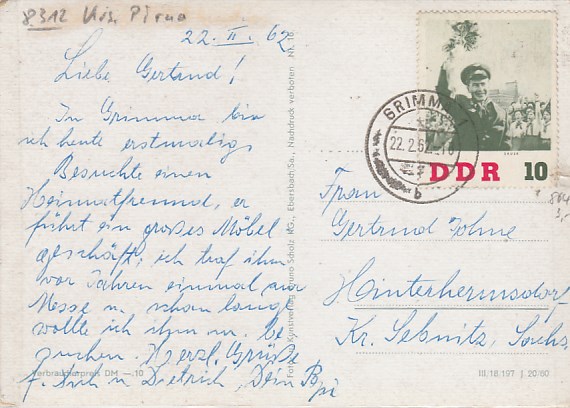 8312 Krs. Pirna
22. II. 62
Liebe Gertrud!
In Grimma bin
ich heute erstmalig,
Besuchte einen
Heimatfreund, er
führt ein großes Möbel
geschäft; ich traf ihn
vor Jahren einmal zur
Messe u. schon lange
wollte ich ihn m. be
suchen. Herzl. Grüße
f. Dich u. Dietrich, Dein
Verbraucherpreis DM —.10
Foto u. Kunstverlag Bruno Scholz KG., Ebersbach Sa., Nachdruck verboten Nr. 16
GRIMMA
22.2.62
b
DDR 10
Frau
Gertrud Johne
Hinterhermsdorf
Kr. Sebnitz, Sachs.
III/18/197 J 20/60